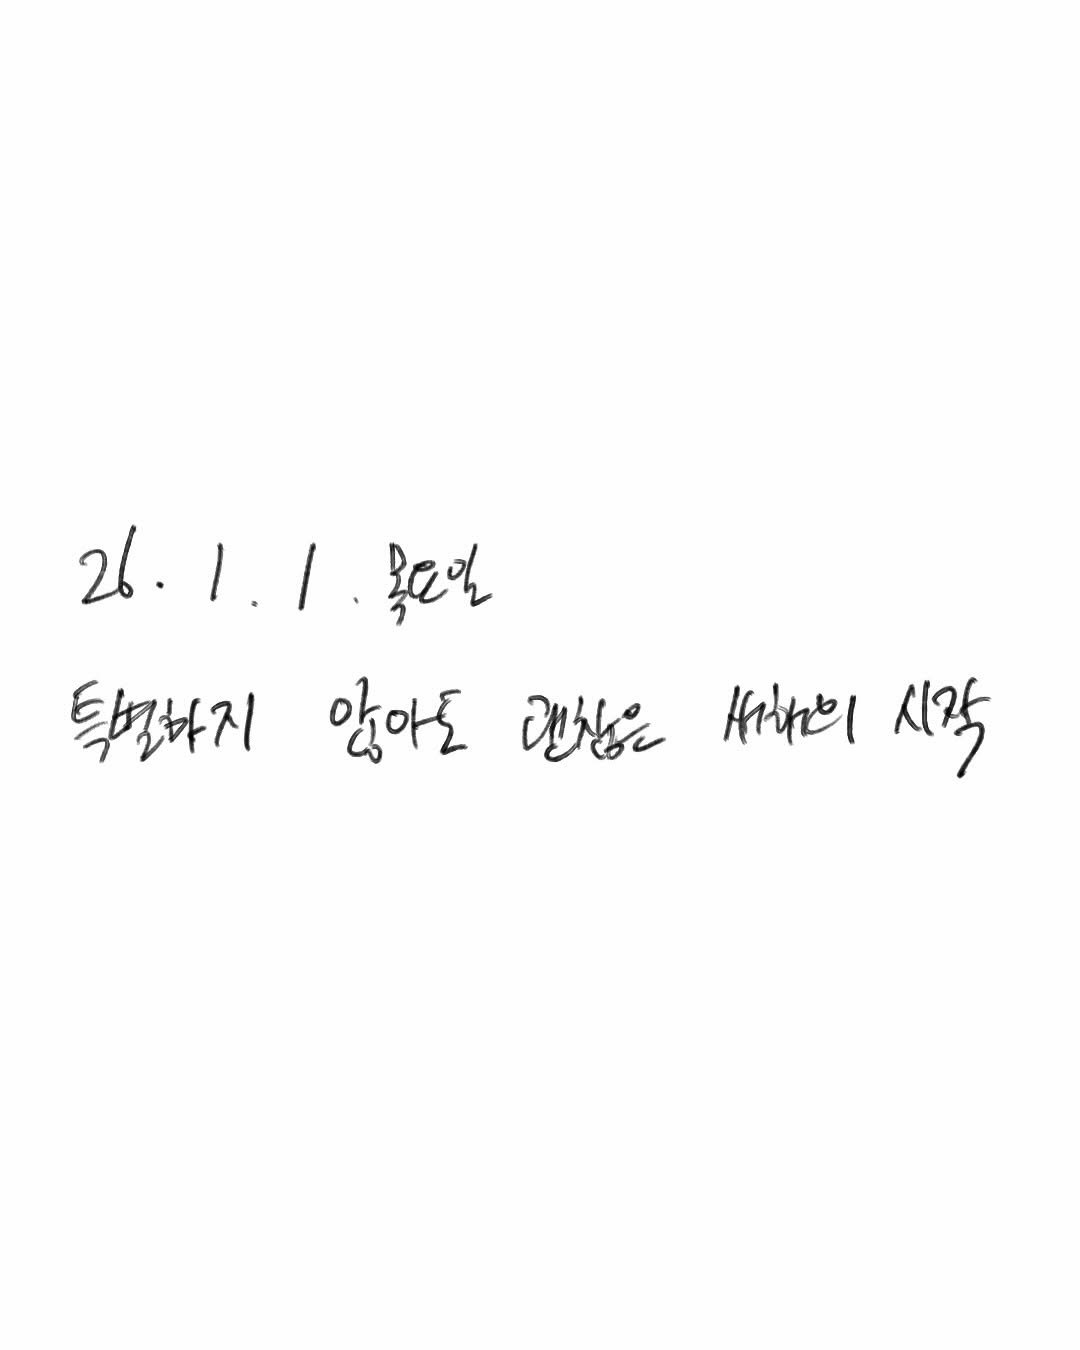 26. 1. 1. 목요일
특별하지 않아도 괜찮은 새해의 시작